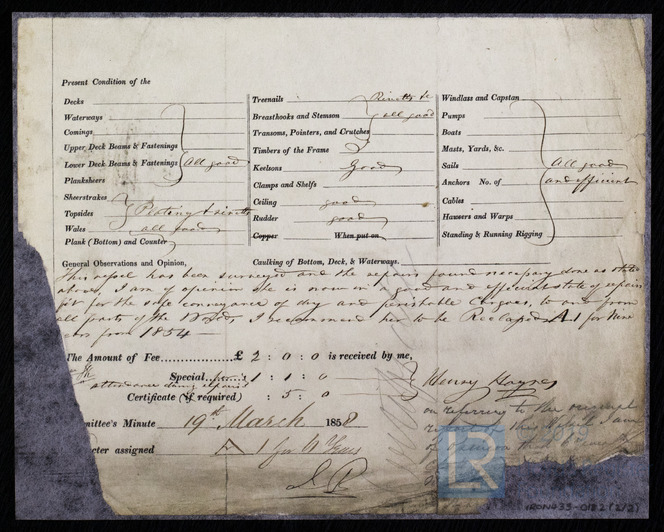 Present Condition of the
Decks
Waterways
Comings
Upper Deck Beams & Fastenings
Lower Deck Beams & Fastenings All good
Planksheers
Sheerstrakes
Topsides Plating & rivets
Wales all good
Plank (Bottom) and Counter
Treenails Rivetts &c
Breasthooks and Stemson all good
Transoms, Pointers, and Crutches
Timbers of the Frame
Keelsons Good
Clamps and Shelfs
Ceiling good
Rudder good
Copper When put on
Windlass and Capstan
Pumps
Boats
Masts, Yards, &c.
Sails All good
Anchors No. of and efficient
Cables
Hawsers and Warps
Standing & Running Rigging
General Observations and Opinion, Caulking of Bottom, Deck, & Waterways.
This vessel has been surveyed and the repairs found necessary done as stated
above, I am of opinion she is now in a good and efficient state of repairs
fit for the safe conveyance of dry and perishable Cargoes, to and from
all parts of the World, I recommend her to be Reclassed A1 for Nine
years from 1854
The Amount of Fee £ 2 : 0 : 0 is received by me,
Special 1 : 1 : 0
attendance during repairs
Certificate (if required) : 5 : 0
Henry
mittee's Minute 19th March 1858
cter assigned A 1 for 9 Years
on referring to the original
report of this Vessel I am
of opinion that
LR
IRON033-0182 (2/2)